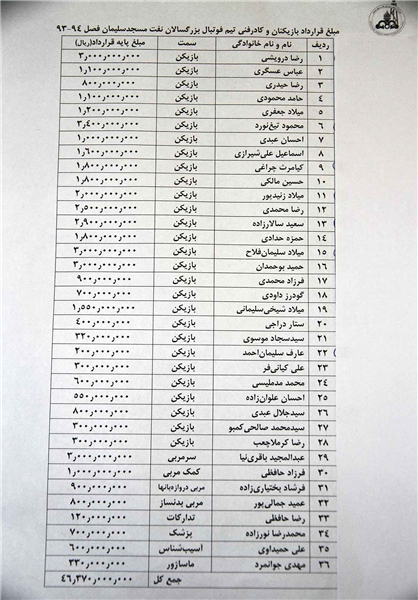 مبلغ قرارداد بازیکنان و کادرفنی تیم فوتبال بزرگسالان نفت مسجدسلیمان فصل ۹۴-۹۳
ردیف نام و نام خانوادگی سمت مبلغ پایه قرارداد(ریال)
۱ رضا درویشی بازیکن ۳٫۰۰۰٫۰۰۰٫۰۰۰
۲ عباس عسگری بازیکن ۱٫۱۰۰٫۰۰۰٫۰۰۰
۳ رضا حیدری بازیکن ۸۰۰٫۰۰۰٫۰۰۰
۴ حامد محمودی بازیکن ۱٫۱۰۰٫۰۰۰٫۰۰۰
۵ میلاد جعفری بازیکن ۱٫۲۰۰٫۰۰۰٫۰۰۰
۶ محمود تیغ‌نورد بازیکن ۳٫۴۰۰٫۰۰۰٫۰۰۰
۷ احسان عبدی بازیکن ۱٫۰۰۰٫۰۰۰٫۰۰۰
۸ اسماعیل علی‌شیرازی بازیکن ۱٫۶۰۰٫۰۰۰٫۰۰۰
۹ کیامرث چراغی بازیکن ۱٫۸۰۰٫۰۰۰٫۰۰۰
۱۰ حسین مالکی بازیکن ۱٫۸۰۰٫۰۰۰٫۰۰۰
۱۱ میلاد زنیدپور بازیکن ۲٫۰۰۰٫۰۰۰٫۰۰۰
۱۲ رضا محمدی بازیکن ۲٫۵۰۰٫۰۰۰٫۰۰۰
۱۳ سعید سالارزاده بازیکن ۲٫۹۰۰٫۰۰۰٫۰۰۰
۱۴ حمزه حدادی بازیکن ۱٫۸۰۰٫۰۰۰٫۰۰۰
۱۵ میلاد سلیمان‌فلاح بازیکن ۳٫۰۰۰٫۰۰۰٫۰۰۰
۱۶ حمید بوحمدان بازیکن ۳٫۰۰۰٫۰۰۰٫۰۰۰
۱۷ فرزاد محمدی بازیکن ۹۰۰٫۰۰۰٫۰۰۰
۱۸ گودرز داودی بازیکن ۷۰۰٫۰۰۰٫۰۰۰
۱۹ میلاد شیخی‌سلیمانی بازیکن ۱٫۵۵۰٫۰۰۰٫۰۰۰
۲۰ ستار دراجی بازیکن ۴۰۰٫۰۰۰٫۰۰۰
۲۱ سیدسجاد موسوی بازیکن ۳۲۰٫۰۰۰٫۰۰۰
۲۲ عارف سلیمان‌احمد بازیکن ۲۰۰٫۰۰۰٫۰۰۰
۲۳ علی کیانی‌فر بازیکن ۳۰۰٫۰۰۰٫۰۰۰
۲۴ محمد مدملیسی بازیکن ۶۰۰٫۰۰۰٫۰۰۰
۲۵ احسان علوان‌زاده بازیکن ۵۵۰٫۰۰۰٫۰۰۰
۲۶ سیدجلال عبدی بازیکن ۸۰۰٫۰۰۰٫۰۰۰
۲۷ سیدمحمد صالحی‌کمبو بازیکن ۳۰۰٫۰۰۰٫۰۰۰
۲۸ رضا کرملاچعب بازیکن ۳۰۰٫۰۰۰٫۰۰۰
۲۹ عبدالمجید باقری‌نیا سرمربی ۳٫۰۰۰٫۰۰۰٫۰۰۰
۳۰ فرزاد حافظی کمک مربی ۱٫۰۰۰٫۰۰۰٫۰۰۰
۳۱ فرشاد بختیاری‌زاده مربی دروازه‌بانها ۹۰۰٫۰۰۰٫۰۰۰
۳۲ عمید جمالی‌پور مربی بدنساز ۸۰۰٫۰۰۰٫۰۰۰
۳۳ رضا حافظی تدارکات ۱۲۰٫۰۰۰٫۰۰۰
۳۴ محمدرضا نورزاده پزشک ۷۰۰٫۰۰۰٫۰۰۰
۳۵ علی حمیداوی آسیب‌شناس ۶۰۰٫۰۰۰٫۰۰۰
۳۶ مهدی جوانمرد ماساژور ۳۳۰٫۰۰۰٫۰۰۰
جمع کل ۴۶٫۳۷۰٫۰۰۰٫۰۰۰